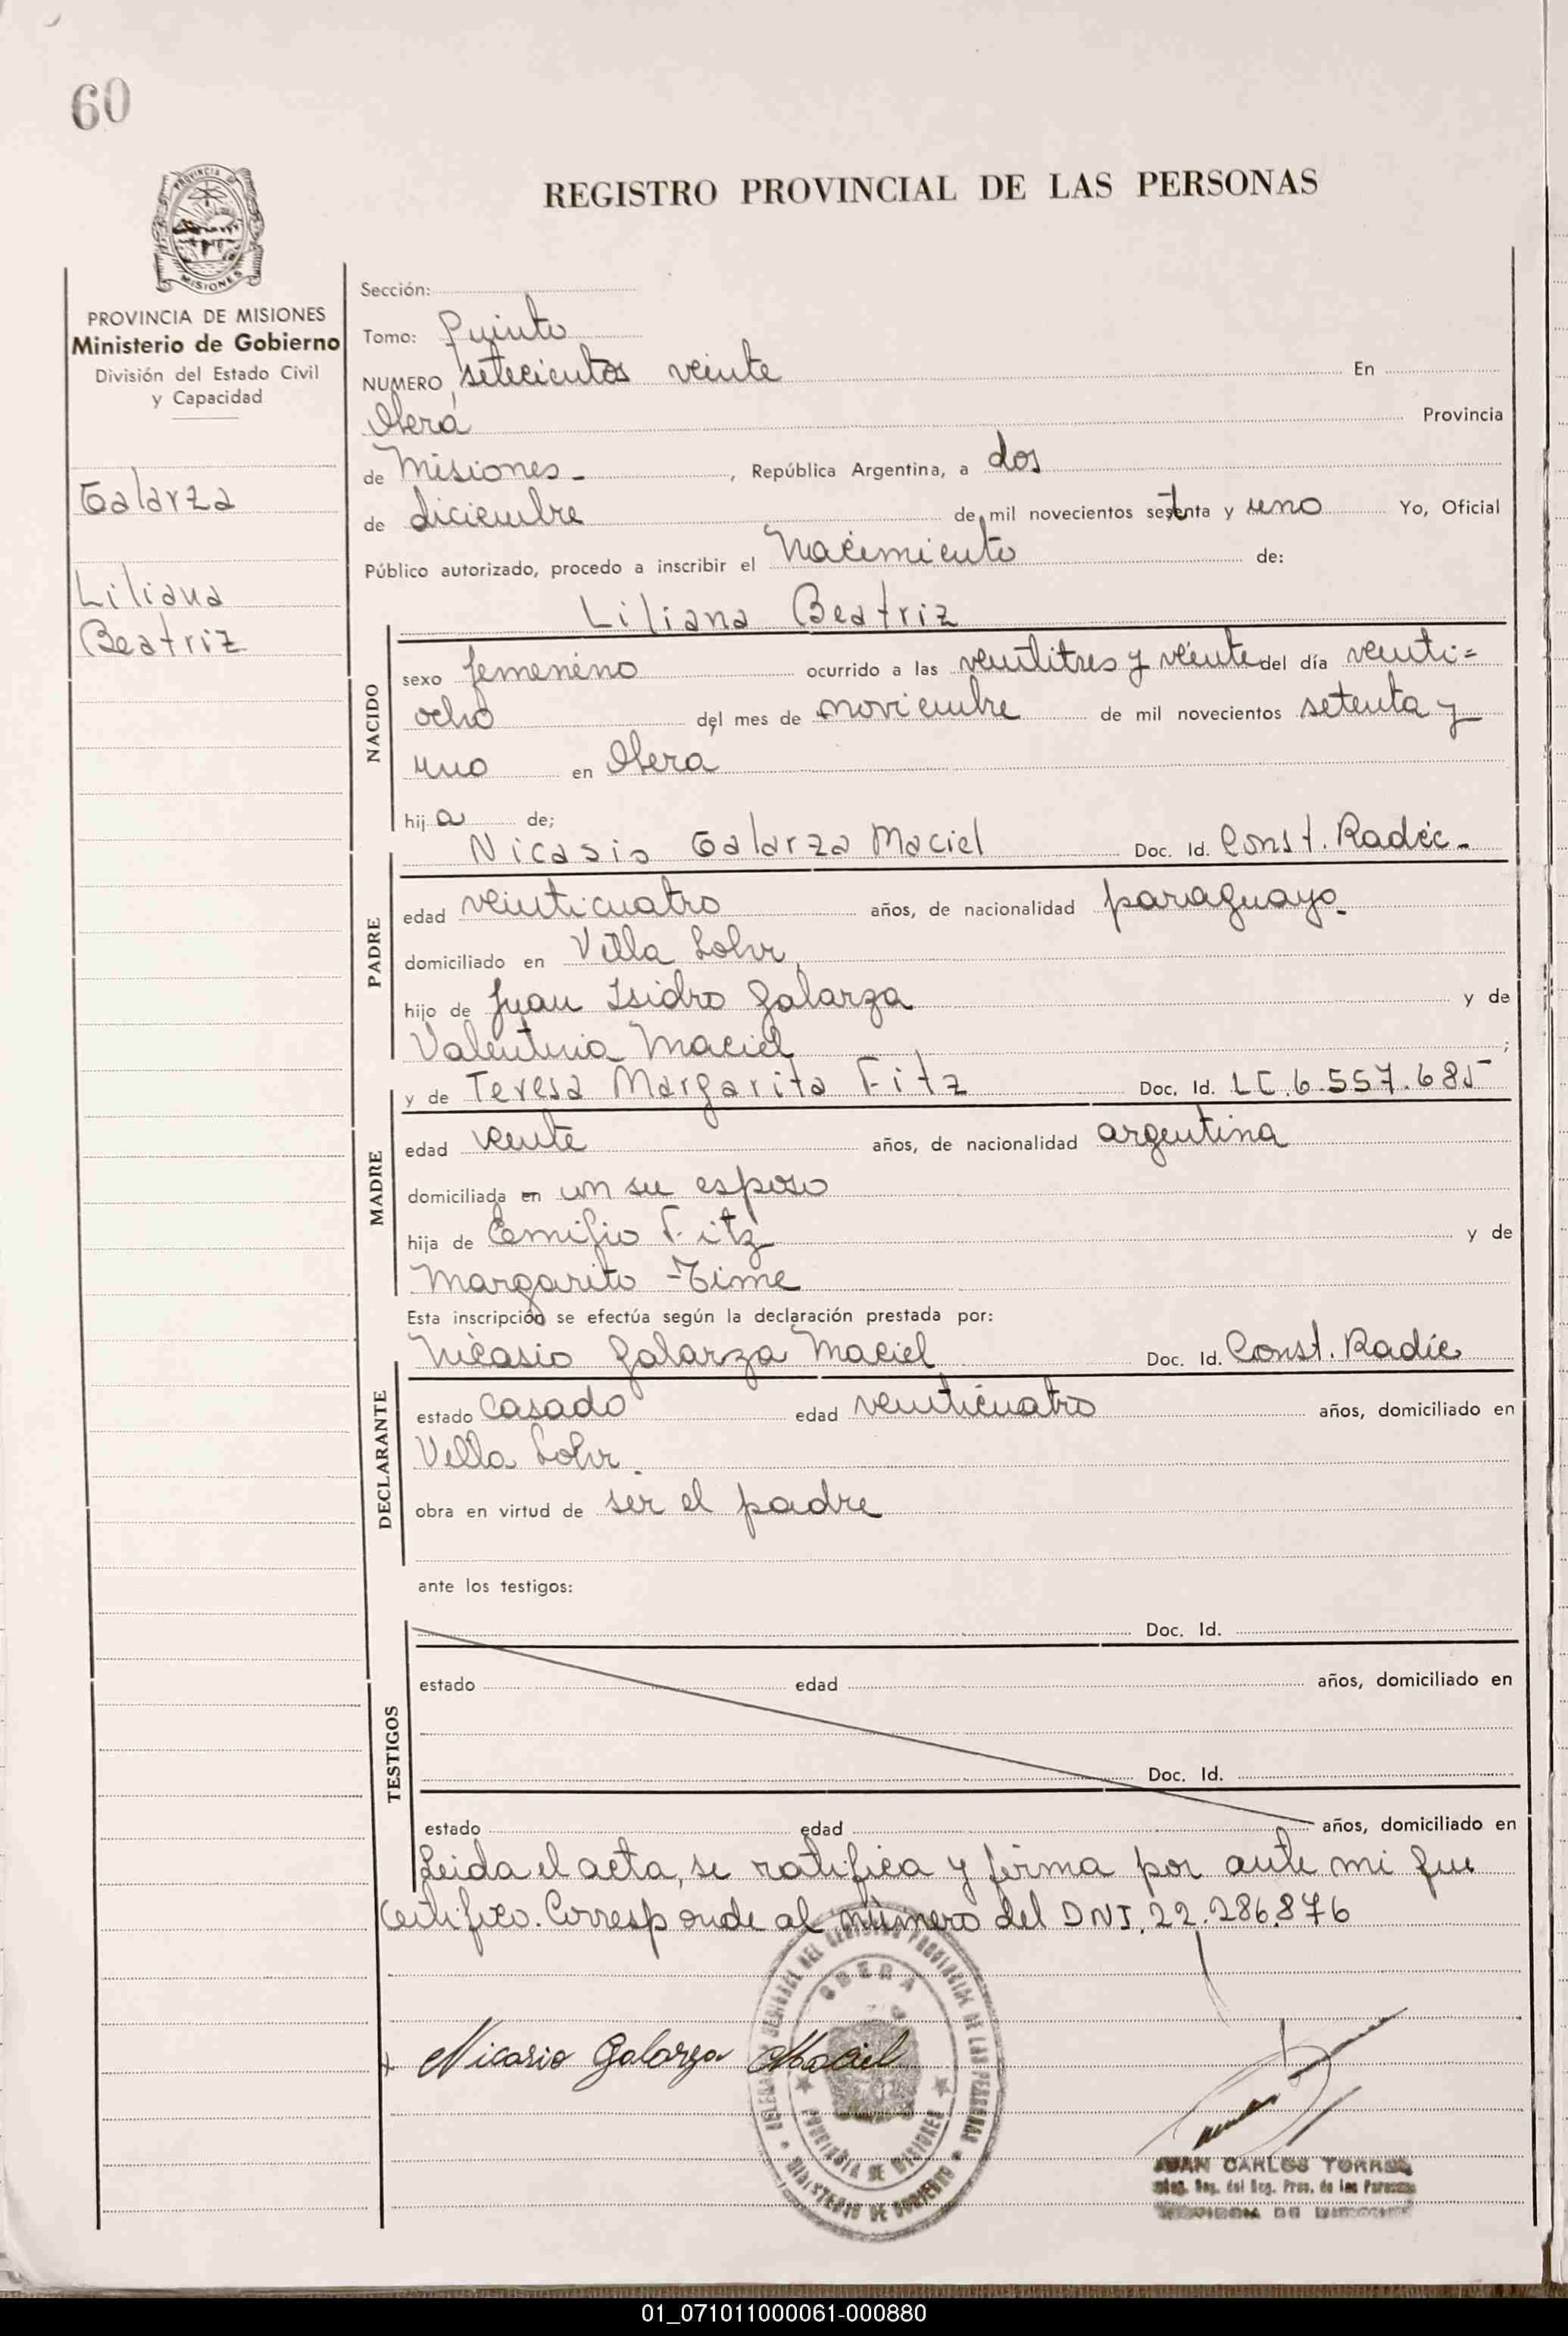 60
REGISTRO PROVINCIAL DE LAS PERSONAS
PROVINCIA DE MISIONES
Ministerio de Gobierno
División del Estado Civil
y Capacidad
Galarza
Liliana
Beatriz
Sección:
Tomo: Quinto
NUMERO setecientos veinte En
Oberá Provincia
de Misiones - , República Argentina, a dos
de diciembre de mil novecientos setenta y uno Yo, Oficial
Público autorizado, procedo a inscribir el Nacimiento de:
Liliana Beatriz
NACIDO
sexo femenino ocurrido a las ventitres y veinte del día venti=
ocho del mes de noviembre de mil novecientos setenta y
uno en Oberá
hija de;
PADRE
Nicasio Galarza Maciel Doc. Id. Const. Radic.
edad veinticuatro años, de nacionalidad paraguayo.
domiciliado en Villa Lohr
hijo de Juan Isidro Galarza y de
Valentina Maciel ;
MADRE
y de Teresa Margarita Fitz Doc. Id. LC.6.557.685
edad veinte años, de nacionalidad argentina
domiciliada en un su esposo
hija de Emilio Fitz y de
Margarita Time
Esta inscripción se efectúa según la declaración prestada por:
DECLARANTE
Nicasio Galarza Maciel Doc. Id. Const. Radic
estado casado edad veinticuatro años, domiciliado en
Villa Lohr.
obra en virtud de ser el padre
ante los testigos:
TESTIGOS
Doc. Id.
estado edad años, domiciliado en
Doc. Id.
estado edad años, domiciliado en
Leida el acta, se ratifica y firma por ante mi que
certifico. Corresponde al número del DNI. 22.286.876
Nicasio Galarza Maciel
OBERA
PROVINCIA DE MISIONES
MINISTERIO DE GOBIERNO
JUAN CARLOS TORRES
del Reg. Prov. de las Personas
01_071011000061-000880